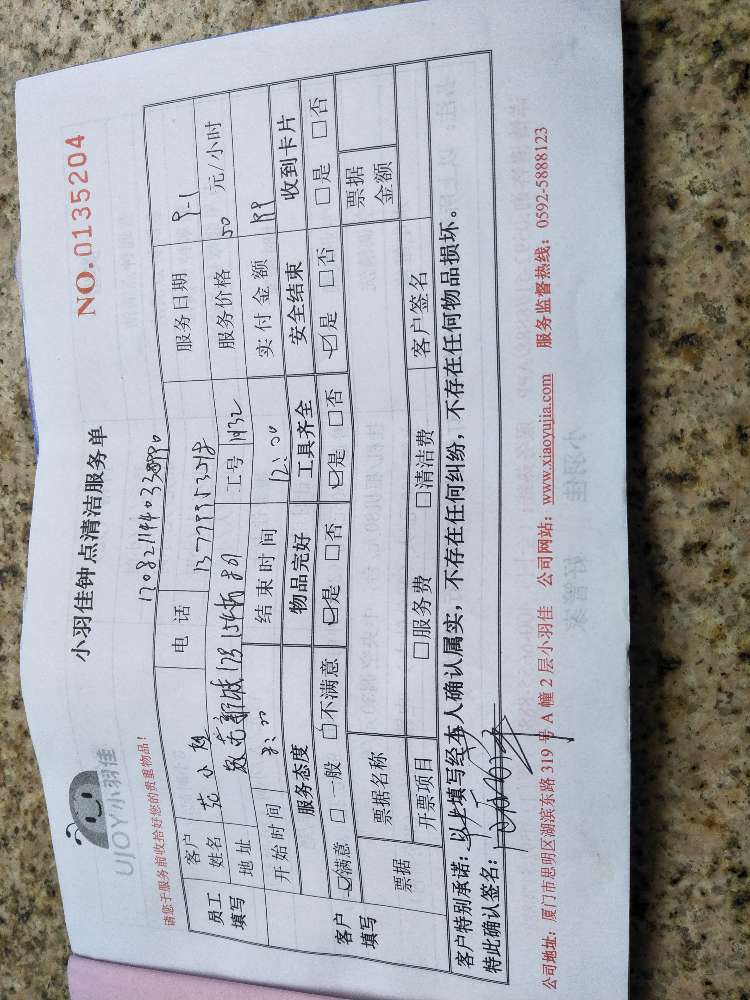 UJOY小羽佳
小羽佳钟点清洁服务单
NO.0135204
请您于服务前收拾好您的贵重物品!
员工填写
客户姓名
电话
服务日期 9-1
地址
工号
服务价格 50 元/小时
开始时间 8:00
结束时间 12:00
实付金额
客户填写
服务态度 物品完好 工具齐全 安全结束 收到卡片
☑满意 □一般 □不满意 ☑是 □否 ☑是 □否 ☑是 □否 □是 □否
票据
票据名称
票据金额
开票项目 □服务费 □清洁费 客户签名
客户特别承诺:以上填写经本人确认属实,不存在任何纠纷,不存在任何物品损坏。
特此确认签名:
公司地址:厦门市思明区湖滨东路 319 号 A 幢 2 层小羽佳 公司网站:www.xiaoyujia.com 服务监督热线:0592-5888123